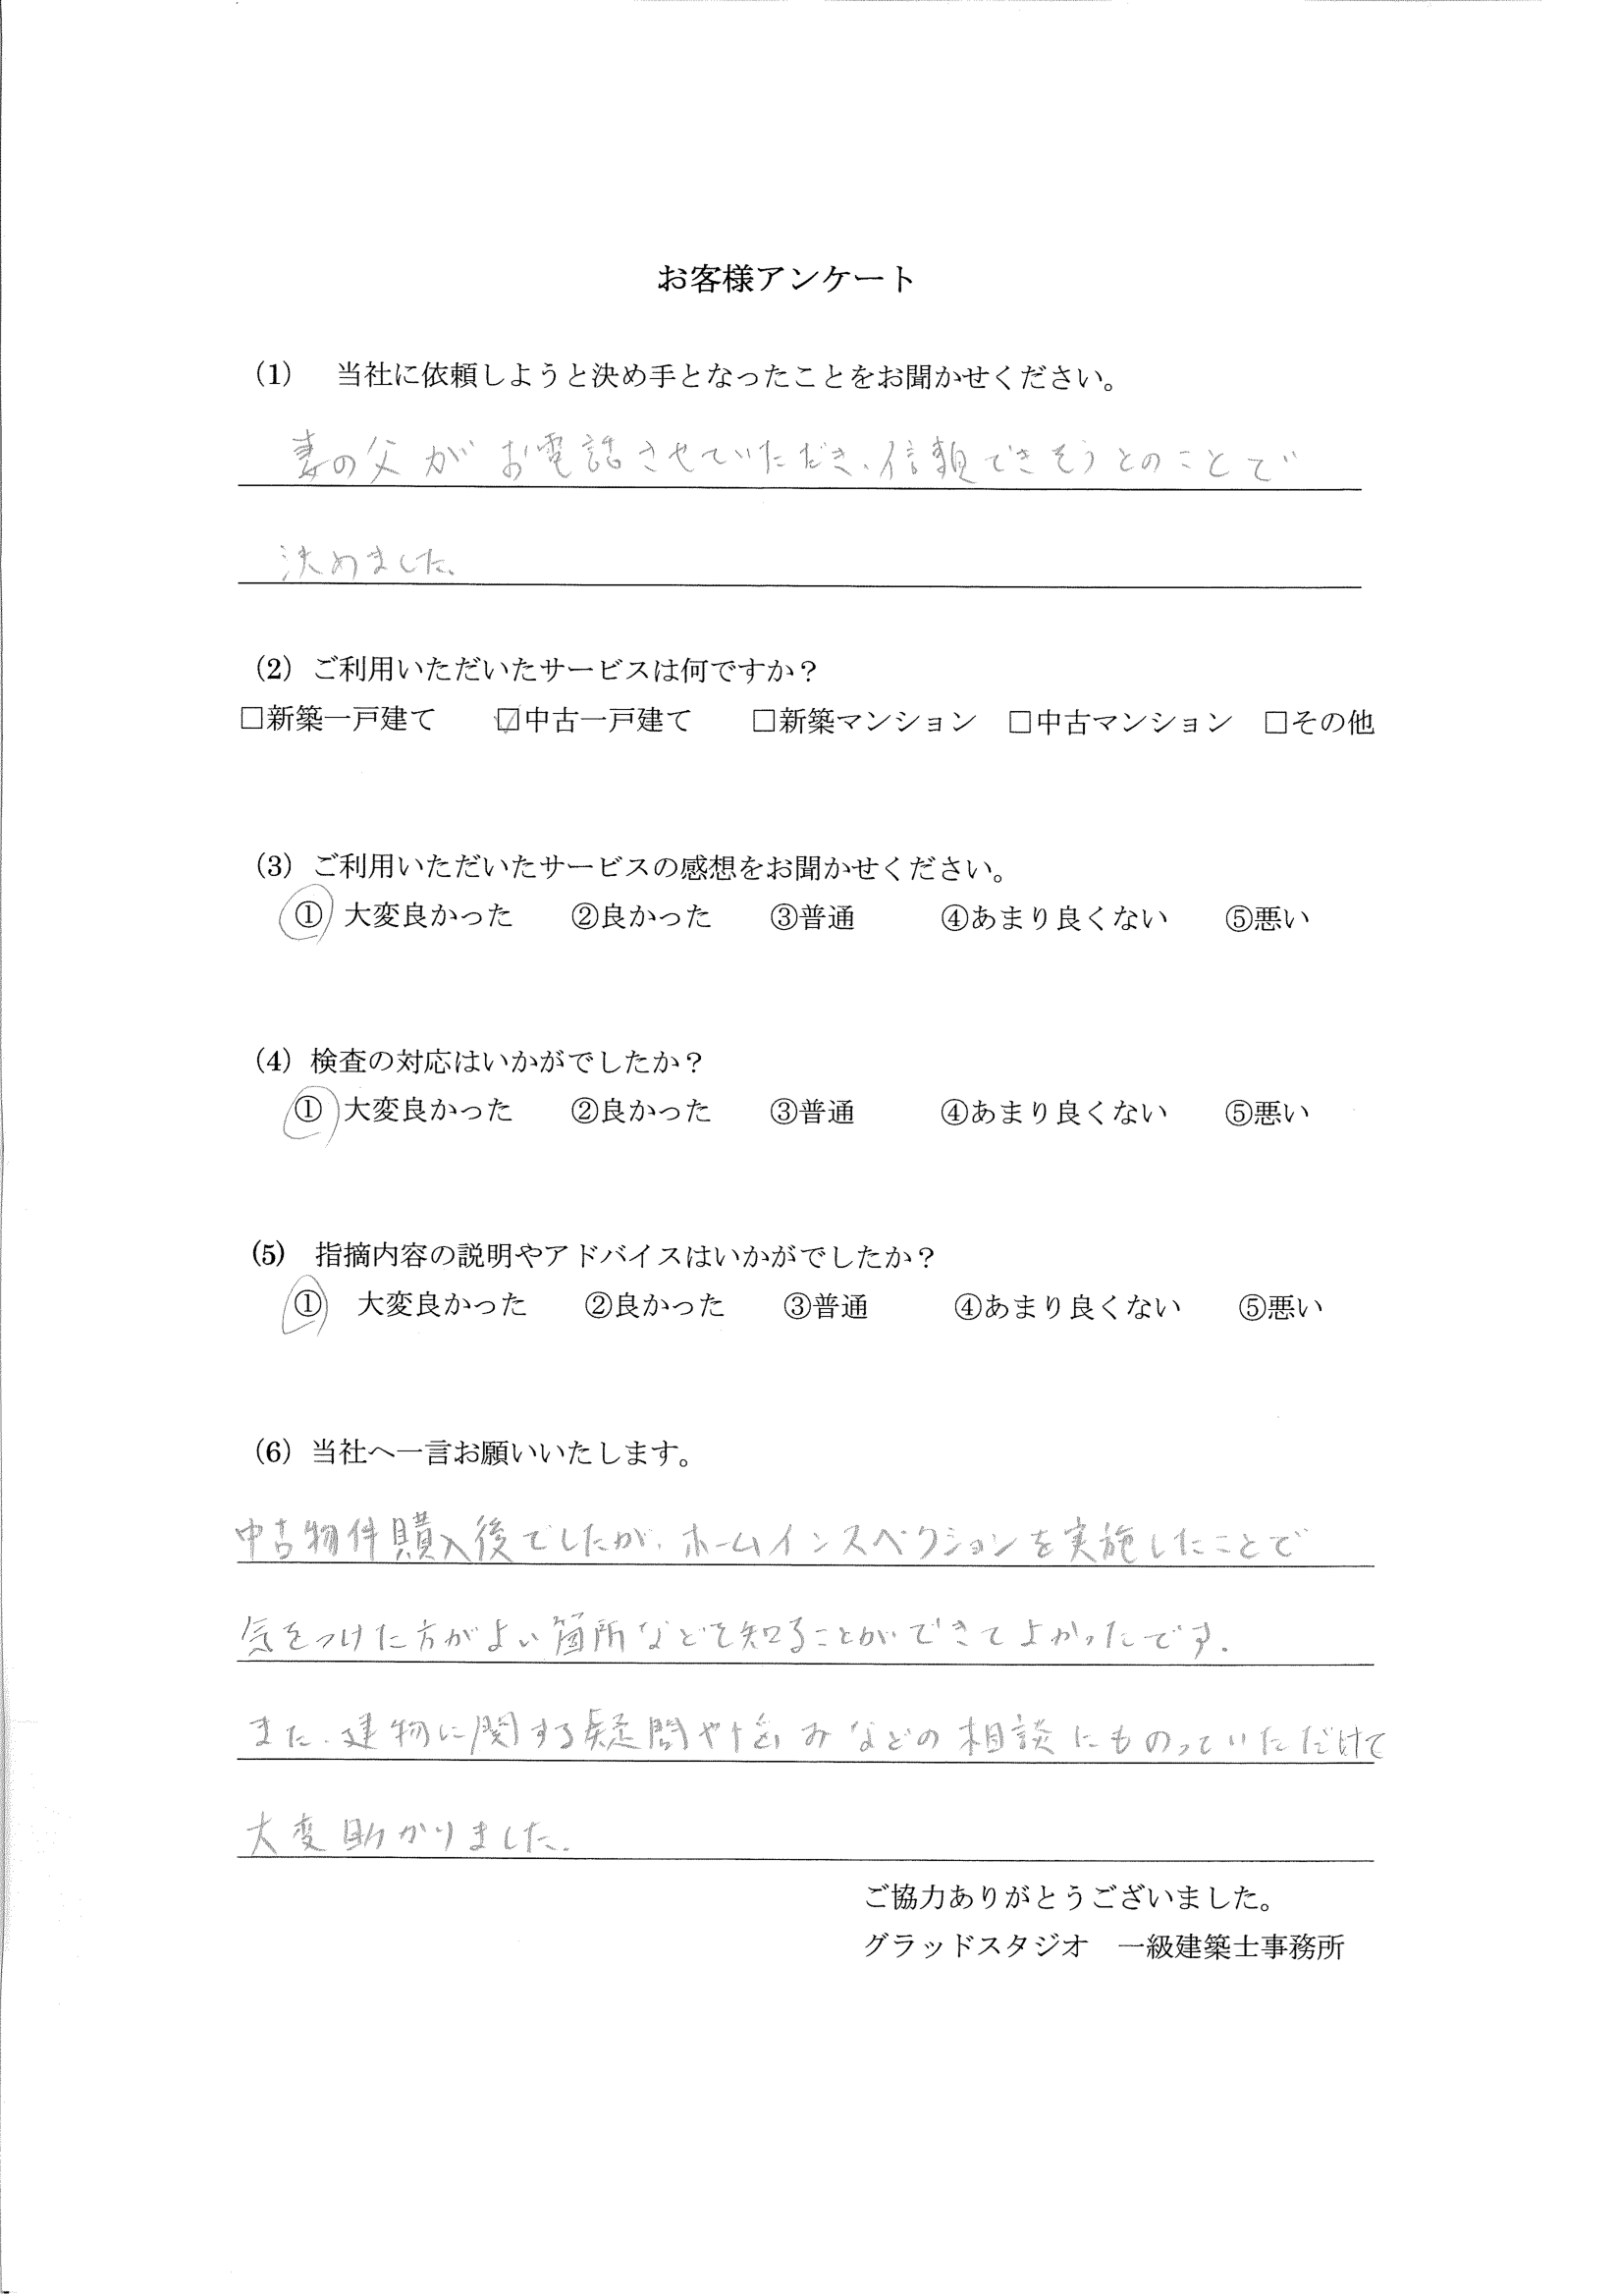 お客様アンケート
(1) 当社に依頼しようと決め手となったことをお聞かせください。
妻の父が お電話させていただき、信頼できそうとのことで
決めました。
(2) ご利用いただいたサービスは何ですか？
□新築一戸建て ☑中古一戸建て □新築マンション □中古マンション □その他
(3) ご利用いただいたサービスの感想をお聞かせください。
① 大変良かった ②良かった ③普通 ④あまり良くない ⑤悪い
(4) 検査の対応はいかがでしたか？
① 大変良かった ②良かった ③普通 ④あまり良くない ⑤悪い
(5) 指摘内容の説明やアドバイスはいかがでしたか？
① 大変良かった ②良かった ③普通 ④あまり良くない ⑤悪い
(6) 当社へ一言お願いいたします。
中古物件購入後でしたが、ホームインスペクションを実施したことで
気をつけた方がよい箇所などを知ることができてよかったです。
また、建物に関する疑問や悩みなどの相談にものっていただけて
大変助かりました。
ご協力ありがとうございました。
グラッドスタジオ 一級建築士事務所